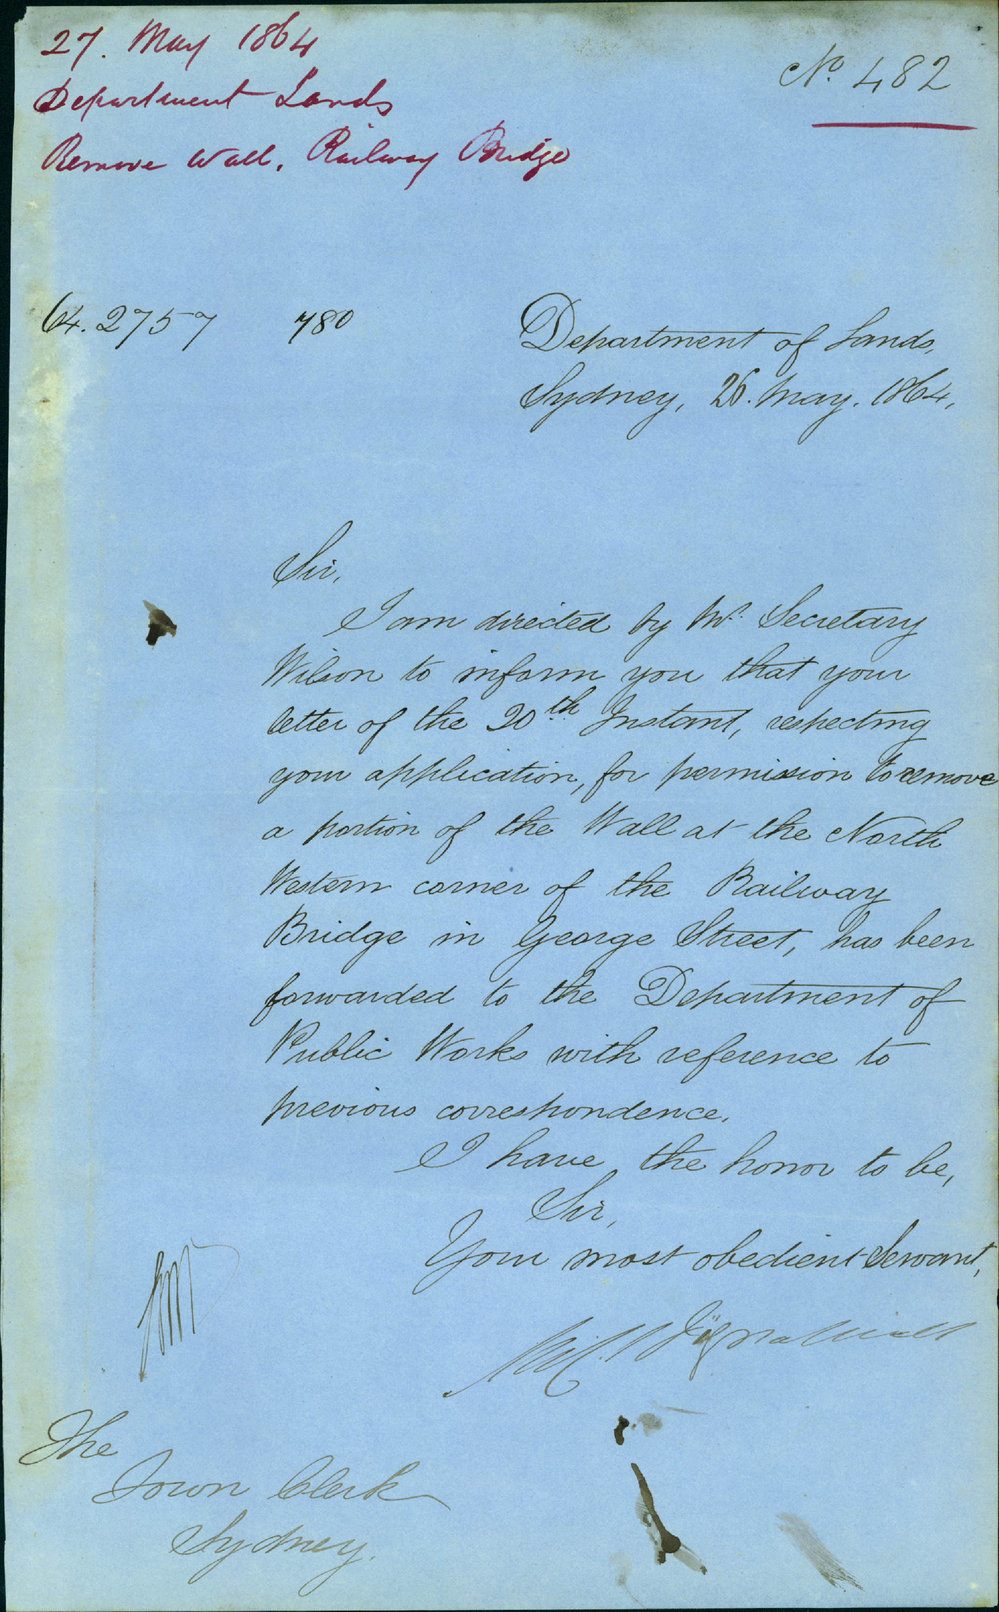 27. May 1864
Department Lands
Remove Wall. Railway Bridge
No. 482
64.2757 780
Department of Lands,
Sydney, 26. May. 1864,
Sir,
I am directed by Mr. Secretary
Wilson to inform you that your
letter of the 20th Instant, respecting
your application, for permission to remove
a portion of the Wall at the North
Western corner of the Railway
Bridge in George Street, has been
forwarded to the Department of
Public Works with reference to
previous correspondence.
I have the honor to be,
Sir,
Your most obedient Servant,
The
Town Clerk
Sydney.